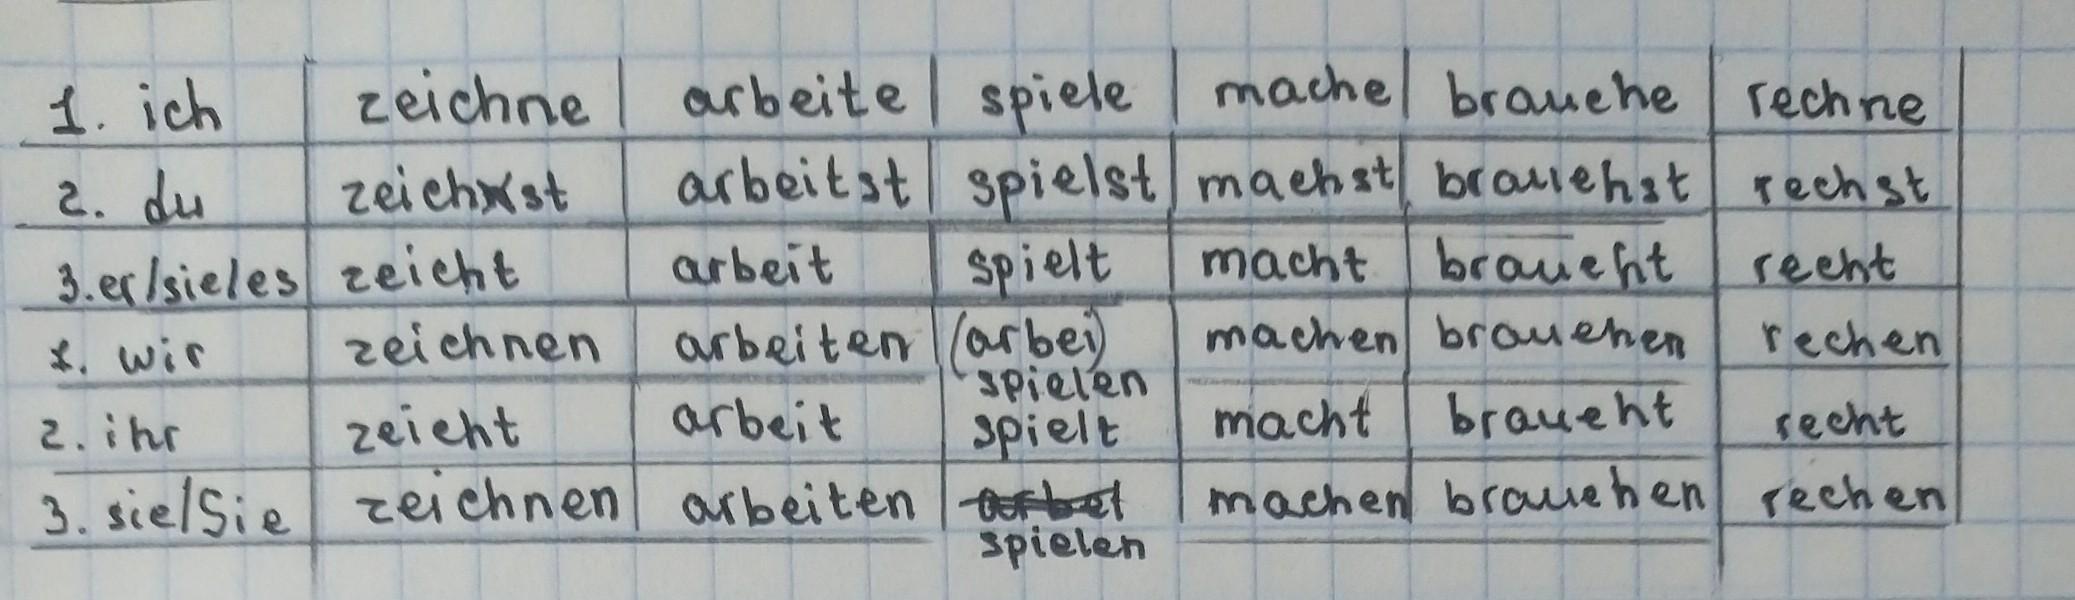 1. ich zeichne arbeite spiele mache brauche rechne
2. du zeichst arbeitst spielst machst brauchst rechst
3. er/sie/es zeicht arbeit spielt macht braucht recht
1. wir zeichnen arbeiten (arbei) machen brauchen rechen
spielen
2. ihr zeicht arbeit spielt macht braucht recht
3. sie/Sie zeichnen arbeiten machen brauchen rechen
spielen